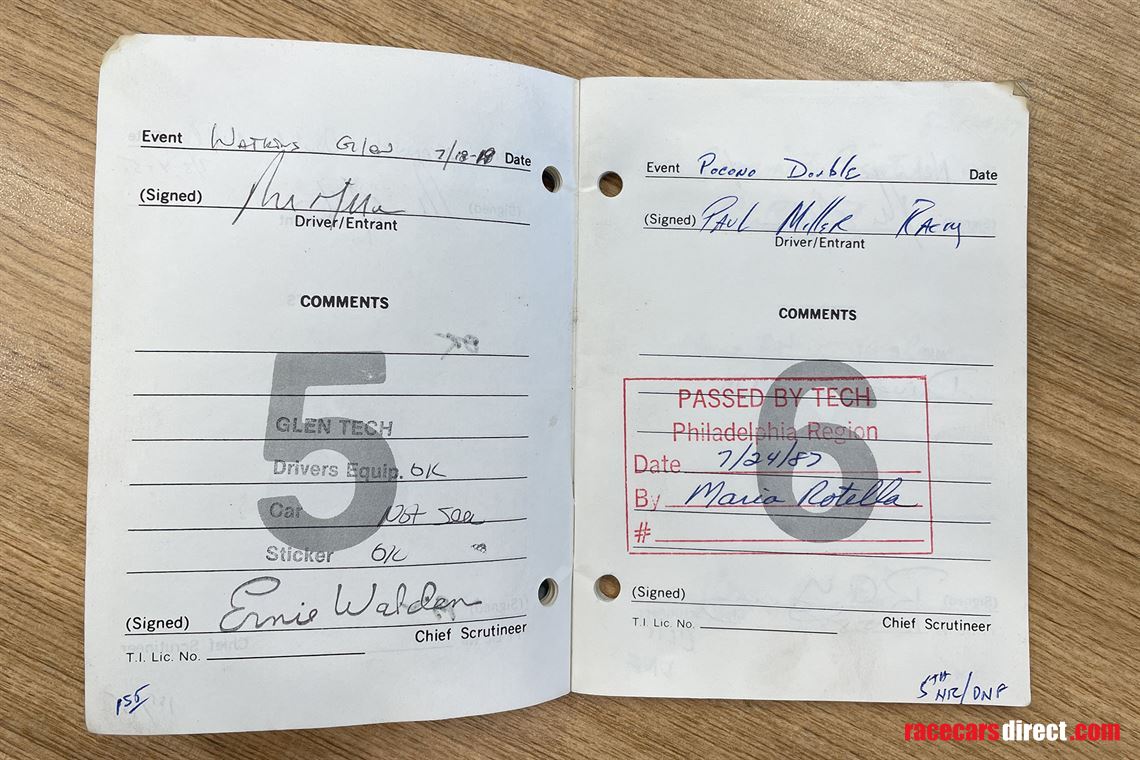 Event Watkins Glen 7/18-19 Date
(Signed)
Driver/Entrant
COMMENTS
OK
5
GLEN TECH
Drivers Equip. OK
Car Not Seen
Sticker OK
(Signed) Ernie Walden
Chief Scrutineer
T.I. Lic. No.
Event Pocono Double Date
(Signed) Paul Miller Racing
Driver/Entrant
COMMENTS
6
PASSED BY TECH
Philadelphia Region
Date 7/24/87
By Maria Rotella
#
(Signed)
T.I. Lic. No. Chief Scrutineer
5TH NR/DNF
racecarsdirect.com